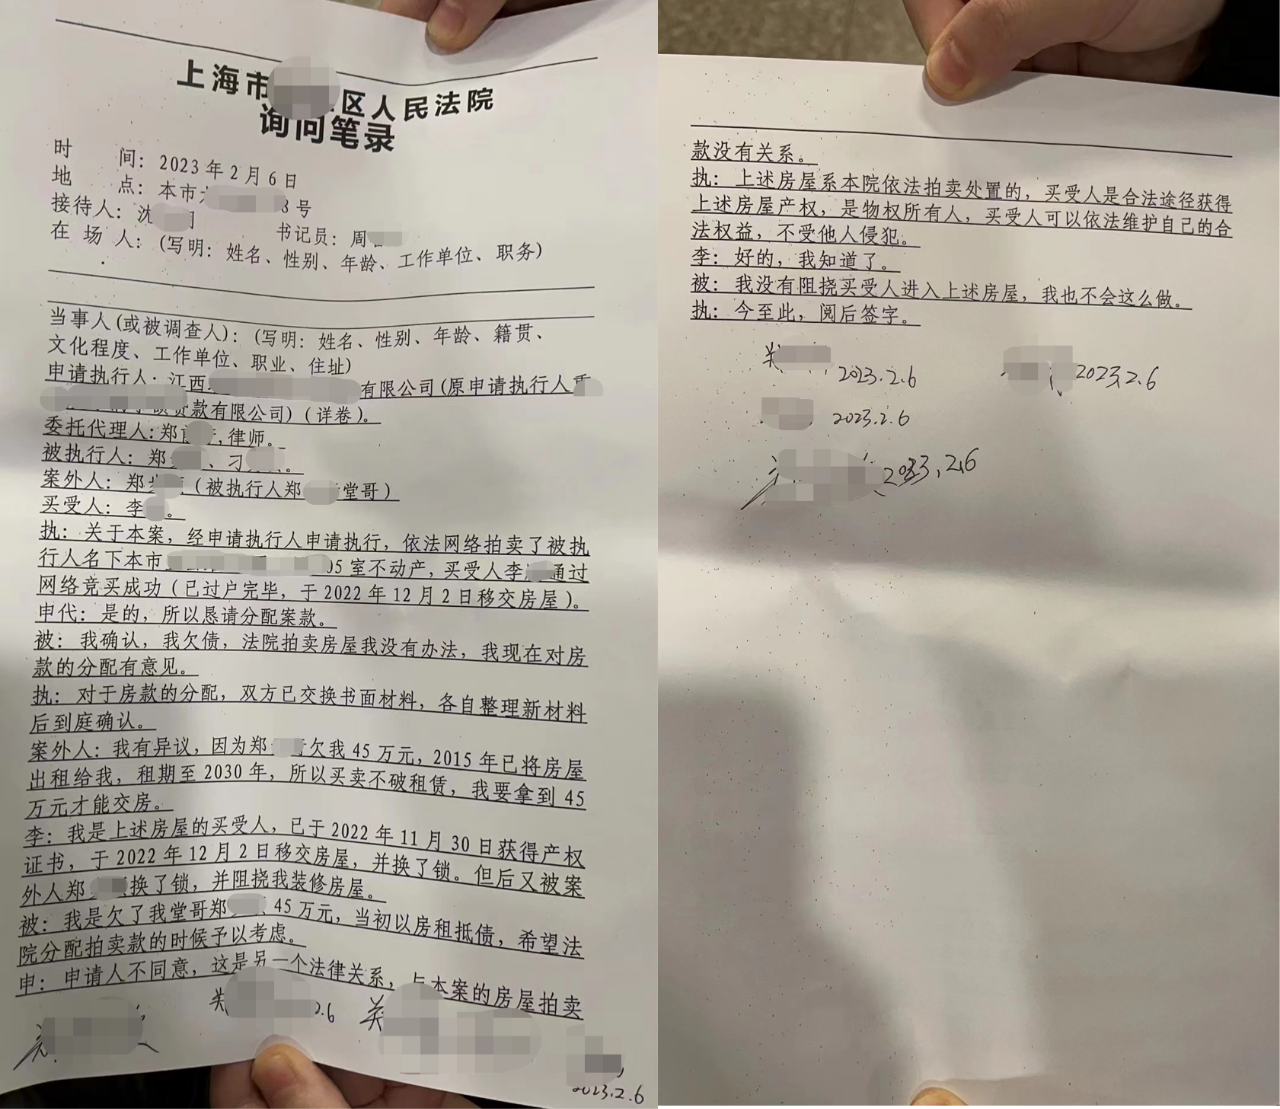 上海市 区人民法院
询问笔录
时 间：2023年2月6日
地 点：本市 8号
接待人：沈 书记员：周
在 场 人：（写明：姓名、性别、年龄、工作单位、职务）
当事人（或被调查人）：（写明：姓名、性别、年龄、籍贯、
文化程度、工作单位、职业、住址）
申请执行人：江西 有限公司（原申请执行人重
贷款有限公司）（详卷）。
委托代理人：郑 ，律师。
被执行人：郑 、刁 。
案外人：郑 （被执行人郑 堂哥）
买受人：李 。
执：关于本案，经申请执行人申请执行，依法网络拍卖了被执
行人名下本市 05室不动产，买受人李 通过
网络竞买成功（已过户完毕，于2022年12月2日移交房屋）。
申代：是的，所以恳请分配案款。
被：我确认，我欠债，法院拍卖房屋我没有办法，我现在对房
款的分配有意见。
执：对于房款的分配，双方已交换书面材料，各自整理新材料
后到庭确认。
案外人：我有异议，因为郑 欠我45万元，2015年已将房屋
出租给我，租期至2030年，所以买卖不破租赁，我要拿到45
万元才能交房。
李：我是上述房屋的买受人，已于2022年11月30日获得产权
证书，于2022年12月2日移交房屋，并换了锁。但后又被案
外人郑 换了锁，并阻挠我装修房屋。
被：我是欠了我堂哥郑 45万元，当初以房租抵债，希望法
院分配拍卖款的时候予以考虑。
申：申请人不同意，这是另一个法律关系，与本案的房屋拍卖
2.6
2023.2.6
款没有关系。
执：上述房屋系本院依法拍卖处置的，买受人是合法途径获得
上述房屋产权，是物权所有人，买受人可以依法维护自己的合
法权益，不受他人侵犯。
李：好的，我知道了。
被：我没有阻挠买受人进入上述房屋，我也不会这么做。
执：今至此，阅后签字。
2023.2.6 2023.2.6
2023.2.6
2023.2.6